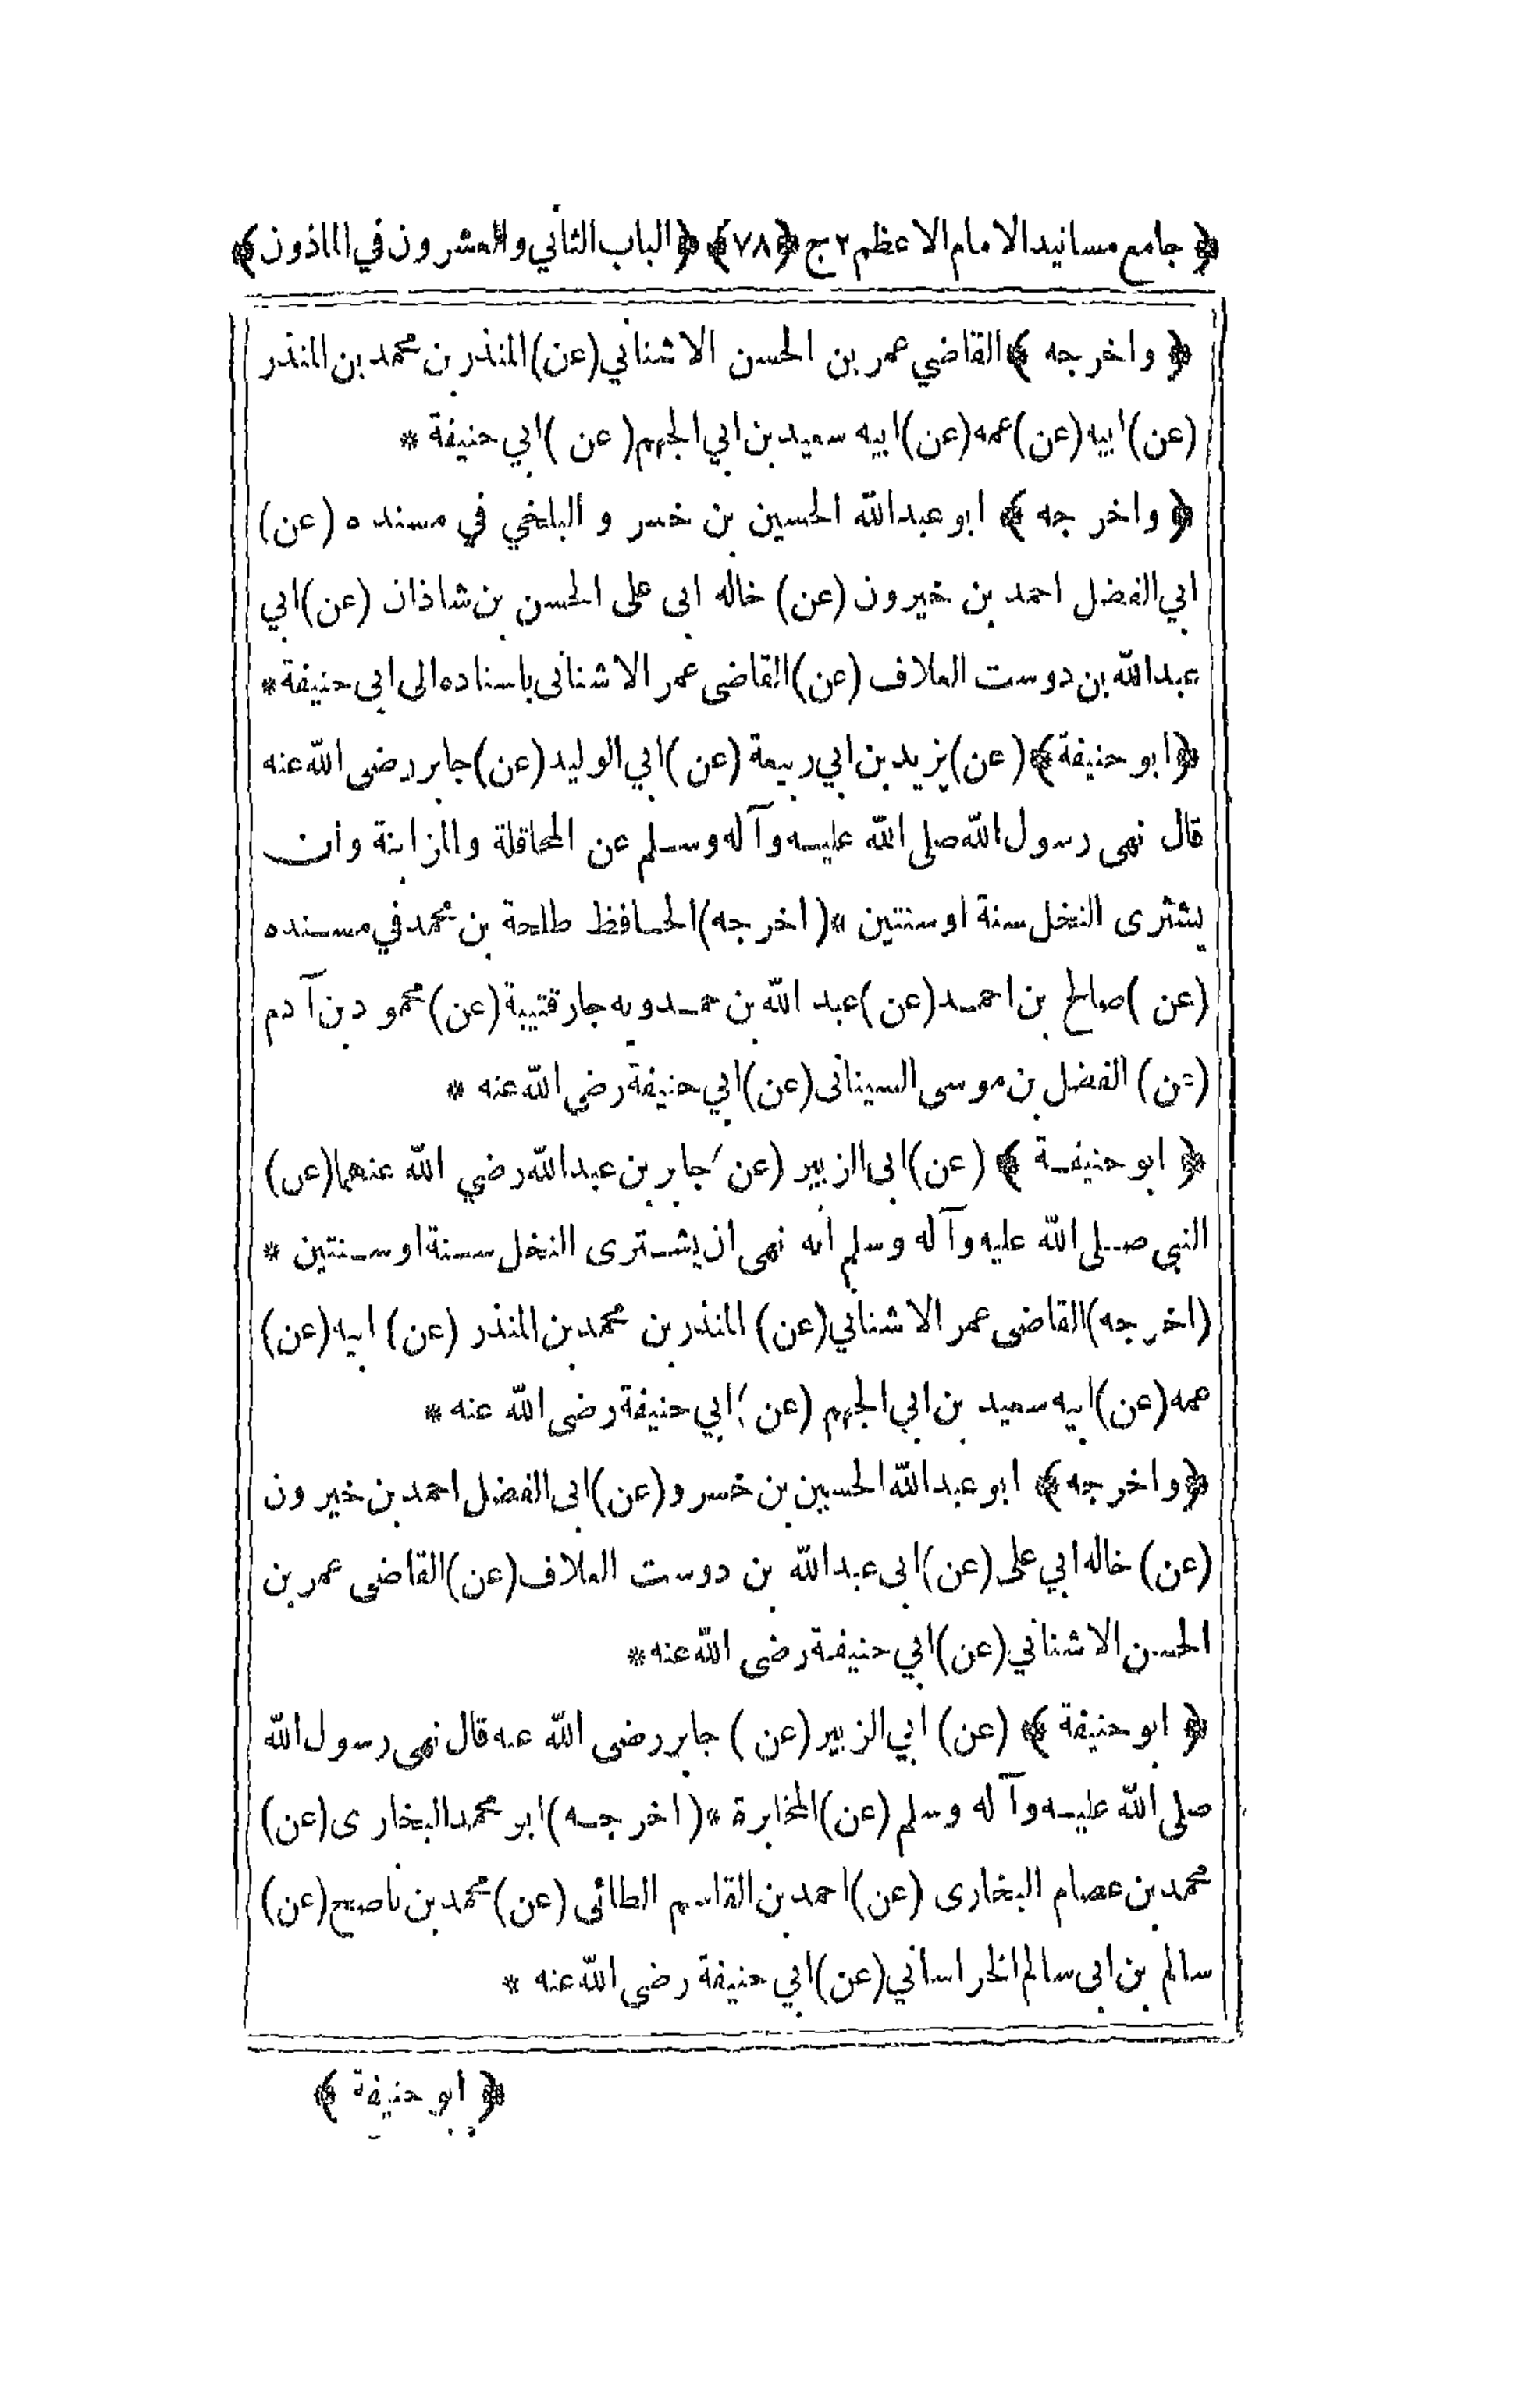 ﴿ جامع مسانيد الامام الاعظم ٢ ج ﴾ ﴿ ٧٨ ﴾ ﴿ الباب الثاني والعشرون في الماذون ﴾
﴿ واخرجه ﴾ القاضي عمر بن الحسن الاشناني (عن) المنذر بن محمد بن المنذر
(عن) ابيه (عن) عمه (عن) ابيه سعيد بن ابي الجهم (عن) ابي حنيفة *
﴿ واخرجه ﴾ ابو عبدالله الحسين بن خسرو البلخي في مسنده (عن)
ابي الفضل احمد بن خيرون (عن) خاله ابى على الحسن بن شاذان (عن) ابي
عبدالله بن دوست العلاف (عن) القاضى عمر الاشنانى باسناده الى ابي حنيفة *
﴿ ابو حنيفة ﴾ (عن) يزيد بن ابي ربيعة (عن) ابي الوليد (عن) جابر رضى الله عنه
قال نهى رسول الله صلى الله عليه وآله وسلم عن المحاقلة والمزابنة وان
يشترى النخل سنة او سنتين * (اخرجه) الحافظ طلحة بن محمد في مسنده
(عن) صالح بن احمد (عن) عبد الله بن حمدويه جار قتيبة (عن) محمود بن آدم
(عن) الفضل بن موسى السينانى (عن) ابي حنيفة رضى الله عنه *
﴿ ابو حنيفة ﴾ (عن) ابى الزبير (عن) جابر بن عبدالله رضي الله عنهما (عن)
النبي صلى الله عليه وآله وسلم انه نهى ان يشترى النخل سنة او سنتين *
(اخرجه) القاضى عمر الاشناني (عن) المنذر بن محمد بن المنذر (عن) ابيه (عن)
عمه (عن) ابيه سعيد بن ابي الجهم (عن) ابي حنيفة رضى الله عنه *
﴿ واخرجه ﴾ ابو عبدالله الحسين بن خسرو (عن) ابى الفضل احمد بن خيرون
(عن) خاله ابي على (عن) ابى عبدالله بن دوست العلاف (عن) القاضى عمر بن
الحسن الاشناني (عن) ابي حنيفة رضى الله عنه *
﴿ ابو حنيفة ﴾ (عن) ابي الزبير (عن) جابر رضى الله عنه قال نهى رسول الله
صلى الله عليه وآله وسلم (عن) المخابرة * (اخرجه) ابو محمد البخارى (عن)
محمد بن عصام البخارى (عن) احمد بن القاسم الطائى (عن) محمد بن ناصح (عن)
سالم بن ابى سالم الخراساني (عن) ابي حنيفة رضى الله عنه *
﴿ ابو حنيفة ﴾